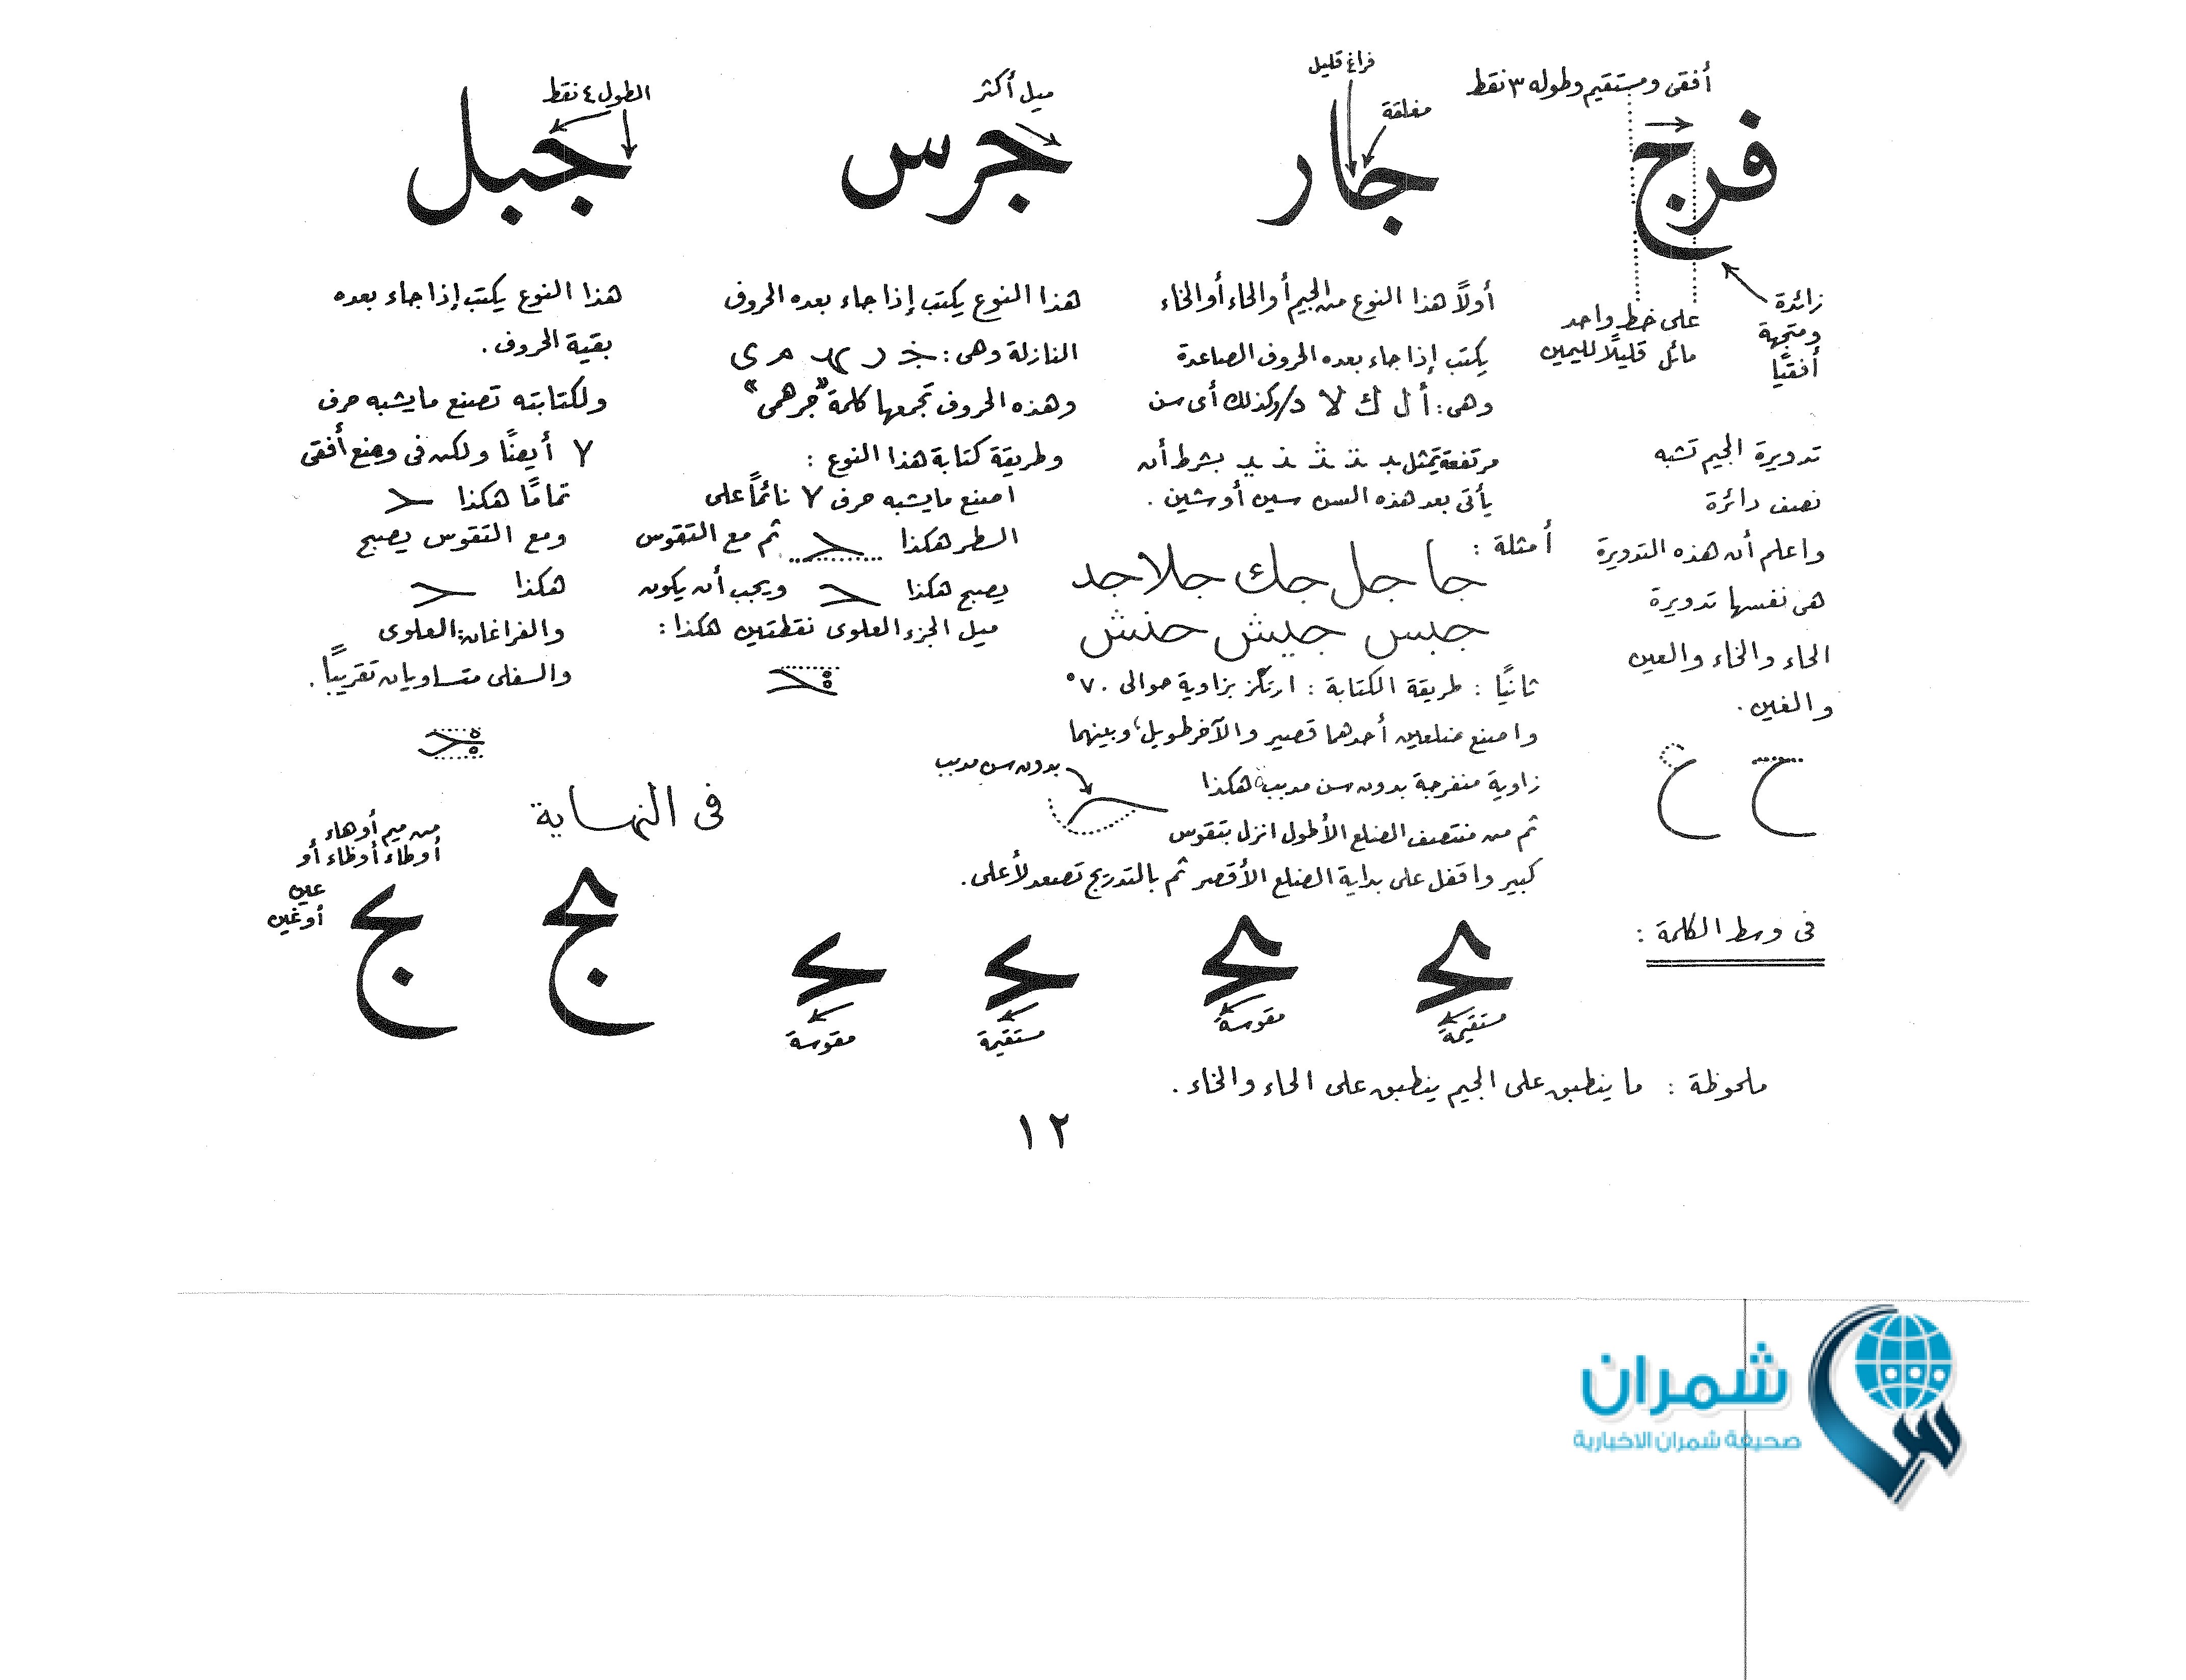 أفقى ومستقيم وطوله ٣ نقط
فرج
زائدة
ومتجهة
أفقيًا
على خط واحد
مائل قليلًا لليمين
تدويرة الجيم تشبه
نصف دائرة
واعلم أن هذه التدويرة
هى نفسها تدويرة
الحاء والخاء والعين
والغين .
ح ح
فراغ قليل
مغلقة
جار
أولًا هذا النوع من الجيم أو الحاء أو الخاء
يكتب إذا جاء بعده الحروف الصاعدة
وهى : أ ل ك لا د / وكذلك أى سن
مرتفعة تمثل بـ نـ تـ ثـ يـ بشرط أن
يأتى بعد هذه السن سين أو شين .
أمثلة :
جا جل جك جلا جد
جبس جيش حنش
ثانيًا : طريقة الكتابة : ارتكز بزاوية حوالى ٧٠°
واصنع ضلعين أحدهما قصير والآخر طويل ، وبينهما
زاوية منفرجة بدون سن مدببة هكذا
بدون سن مدبب
ثم من منتصف الضلع الأطول انزل بتقوس
كبير واقفل على بداية الضلع الأقصر ثم بالتدريج تصعد لأعلى .
ميل أكثر
جرس
هذا النوع يكتب إذا جاء بعده الحروف
النازلة وهى : ر م ى
وهذه الحروف تجمعها كلمة "جرهمى"
وطريقة كتابة هذا النوع :
اصنع مايشبه حرف ٧ نائمًا على
السطر هكذا ثم مع التقوس
يصبح هكذا ويجب أن يكون
ميل الجزء العلوى نقطتين هكذا :
الطول ٤ نقط
جبل
هذا النوع يكتب إذا جاء بعده
بقية الحروف .
ولكتابته تصنع مايشبه حرف
٧ أيضًا ولكن فى وضع أفقى
تمامًا هكذا
ومع التقوس يصبح
هكذا
والفراغان : العلوى
والسفلى متساويان تقريبًا .
فى وسط الكلمة :
مستقيمة
مقوسة
مستقيمة
مقوسة
فى النهاية
من ميم أو هاء
أو طاء أو ظاء أو
عين
أو غين
ملحوظة : ما ينطبق على الجيم ينطبق على الحاء والخاء .
١٢
شمران
صحيفة شمران الاخبارية